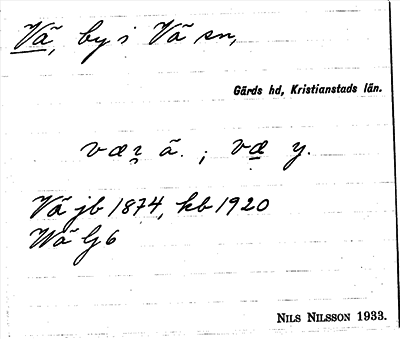 Vä, by i Vä sn,
Gärds hd, Kristianstads län.
væ ̨ ä. ; væ y.
Vä jb 1874, kb 1920
Wä Lj 6
NILS NILSSON 1933.